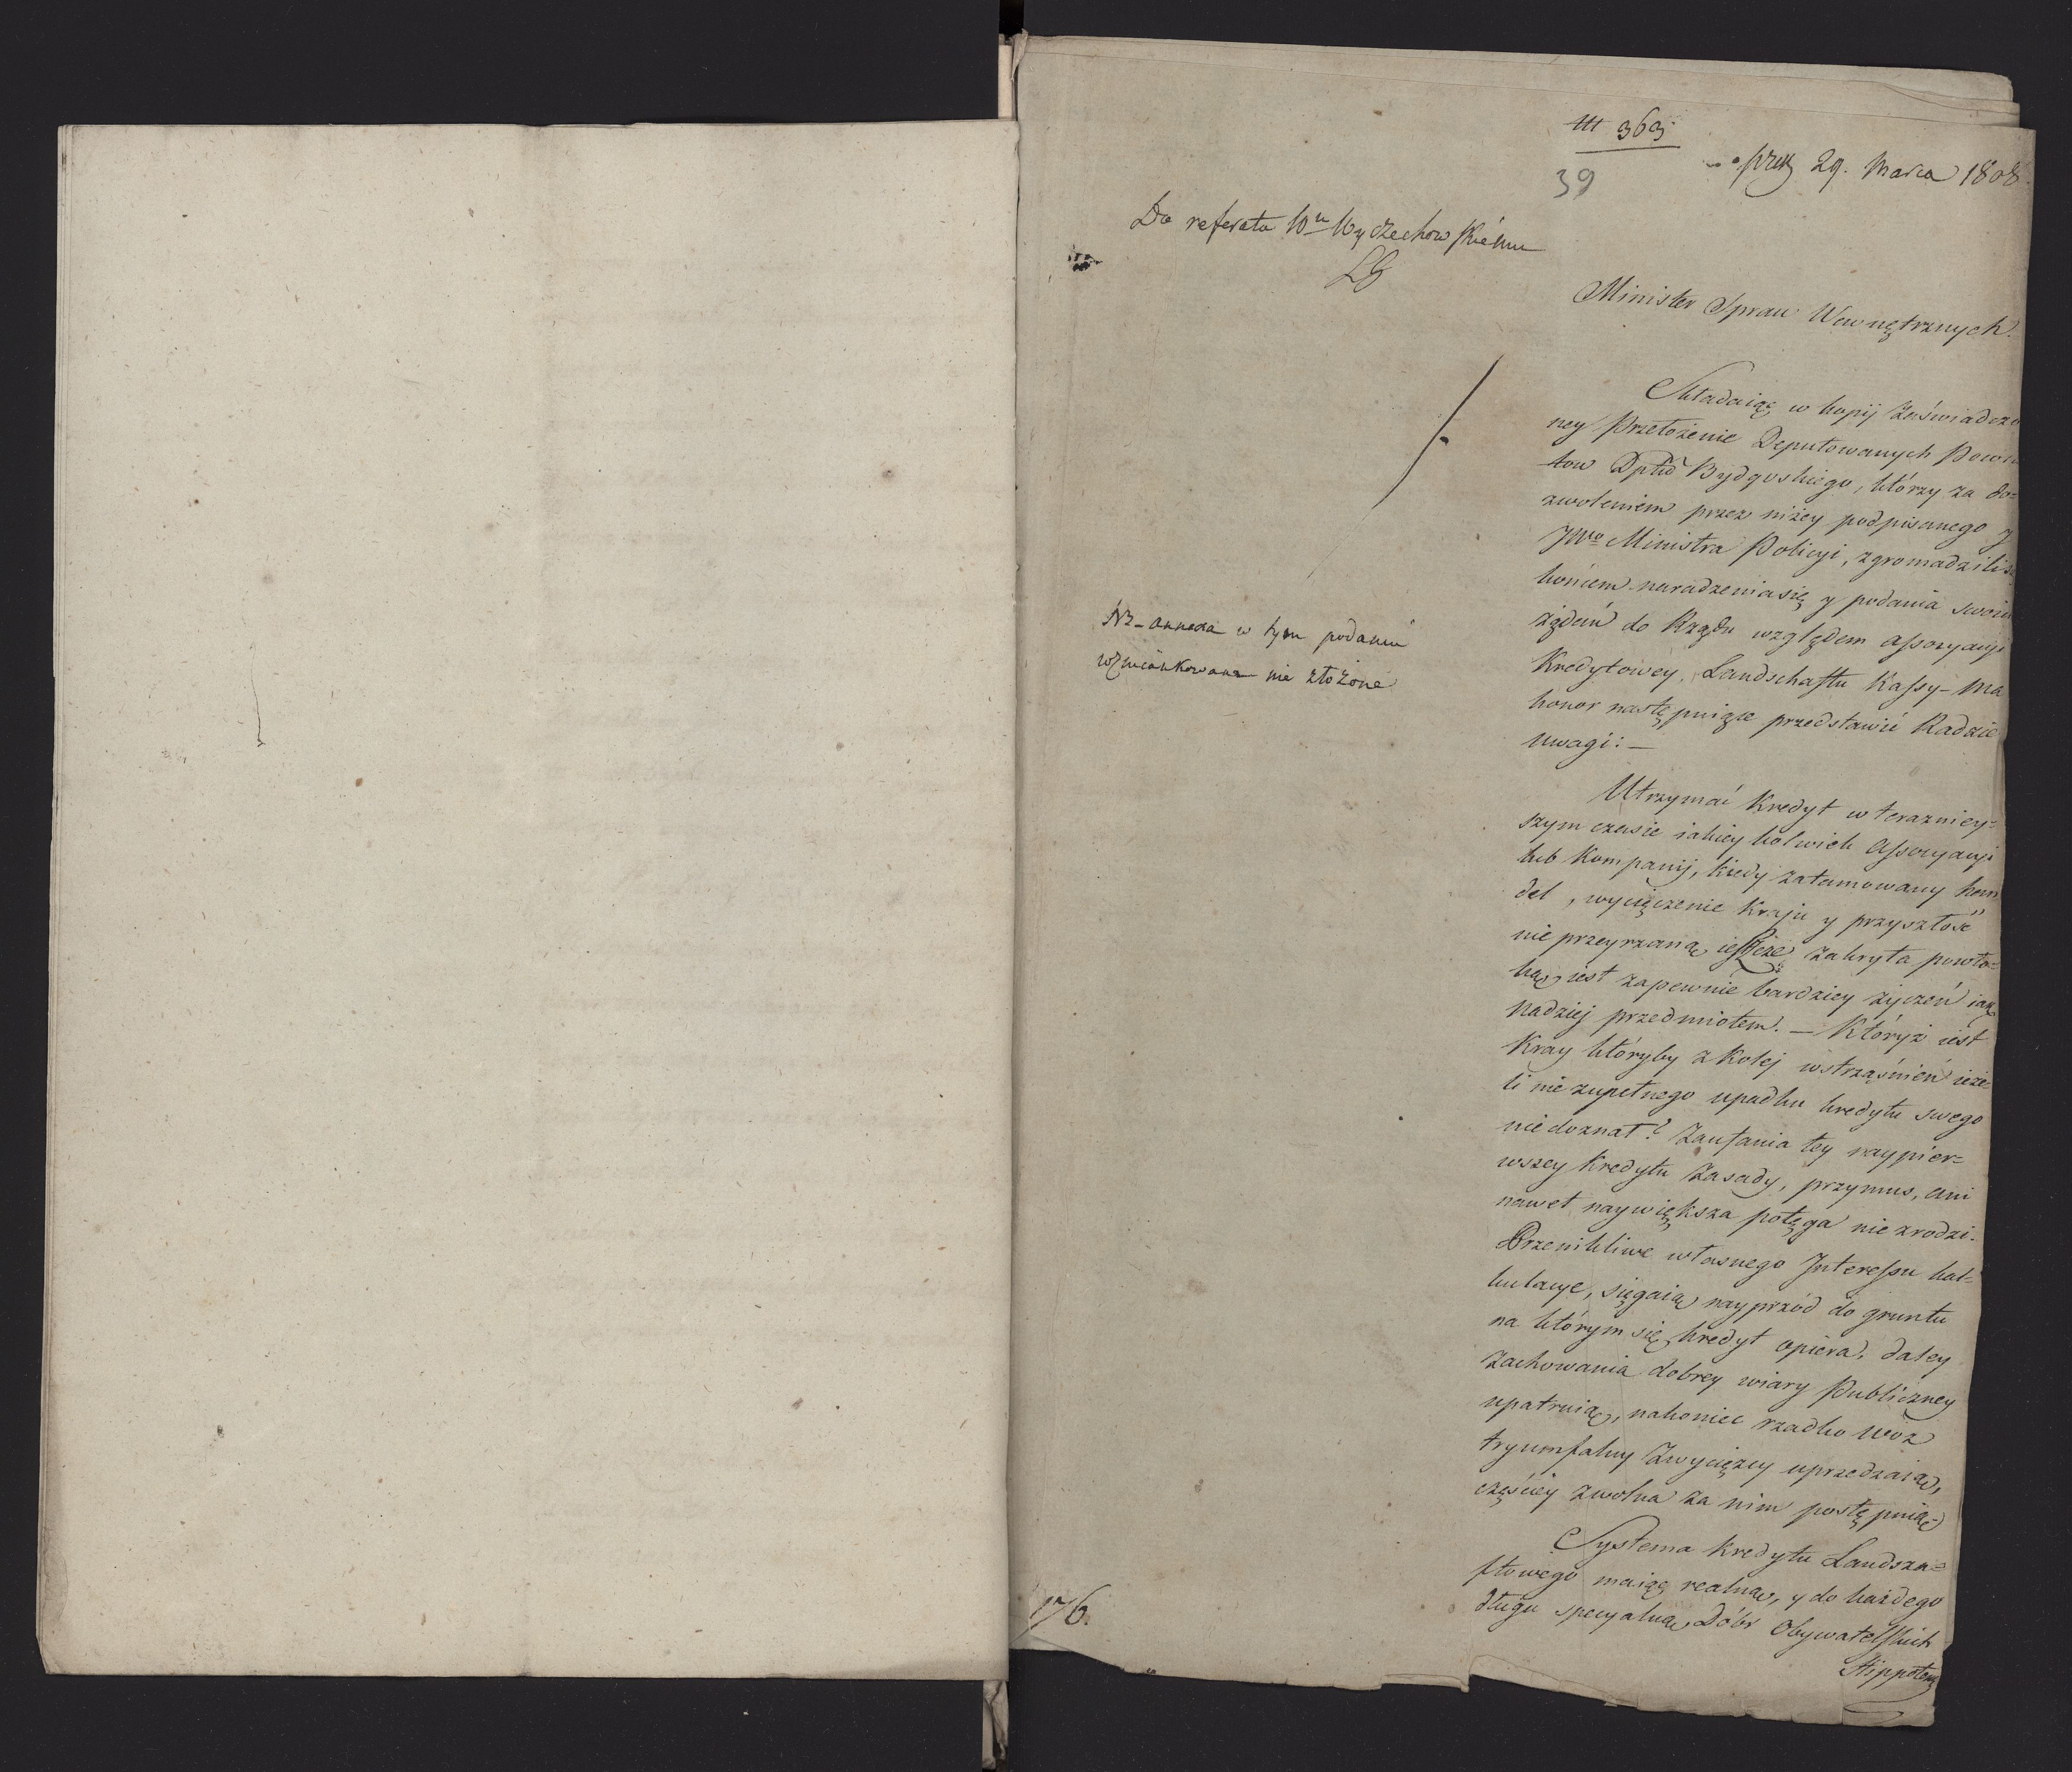 III 363.
39
prez 29. Marca 1808
Do referatu Wu Wyczechowskiému
LG
Minister Spraw Wewnętrznych.
Składaiąc w kopij zaświadczo
ney Przełożenie Deputowanych Powia
tow Dpttu Bydgoskiego, którzy za do=
zwoleniem przez niżey podpisanego y
JWo Ministra Policyi, zgromadzili się
końcem naradzenia się y podania swoich
żądań do Rządu względem Assocyacyi
Kredytowey, Landschaftu Kassy – Ma
honor następuiące przedstawić Radzie
uwagi: –
NB – annexa w tym podaniu
wzmiankowane nie złożone
Utrzymać Kredyt w terazniey=
szym czasie iakiey kolwiek Assocyacyi
lub Kompanij, kiedy zatamowany han
del, wycięczenie Kraju y przyszłość
nie przeyrzaną ieszcze zakryta powło=
ką, iest zapewnie bardziey życzeń iak
nadziej przedmiotem. – Któryż iest
Kray któryby z kolej wstrząśnień ieże=
li nie zupełnego upadku kredytu swego
nie doznał? Zaufania tey naypier=
wszey Kredytu zasady, przymus, ani
nawet naywiększa potęga nie zrodzi.
Przenikliwe własnego Interessu kal=
kulacye, sięgaią nayprzód do gruntu
na którym się kredyt opiera, daley
zachowania dobrey wiary Publiczney
upatruią, nakoniec rzadko wóz
tryumfalny Zwycięzcy uprzedzaią,
częściey zwolna za nim postępuią
Systema kredytu Landsza=
ftowego maiąc realną, y do każdego
długu specyalną Dóbr Obywatelskich
Hippotekę
176.